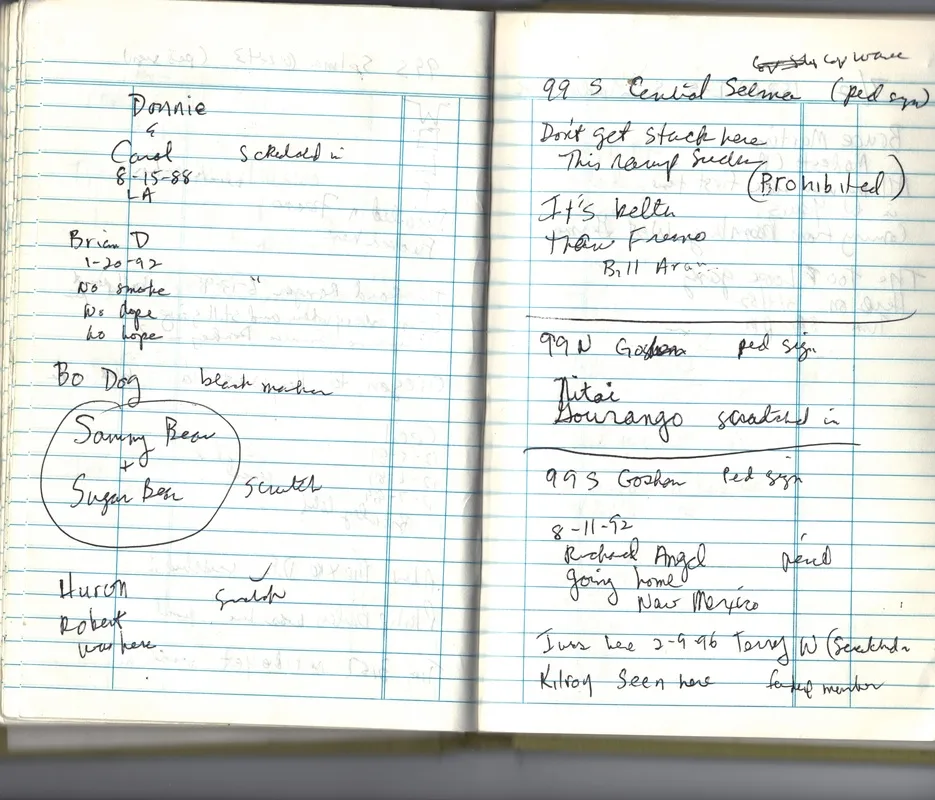 Donnie
&
Carol scratched in
8-15-88
LA
Brian D
1-20-92 "
No smoke
No dope
No hope
Bo Dog black marker
Sammy Bear
+
Sugar Bear scratch
Huron scratch
Robert
was here.
99 S Central Selma (ped sign)
Don't get stuck here
This ramp Sucks
(Prohibited)
It's better
than Fresno
Bill
99 N Goshen ped sign
Nitai
Gourango scratched in
99 S Goshen Ped sign
8-11-92
Richard Angel pencil
going home
New Mexico
I was here 2-9-96 Terry W (Scratched in
Kilroy Seen here faded marker